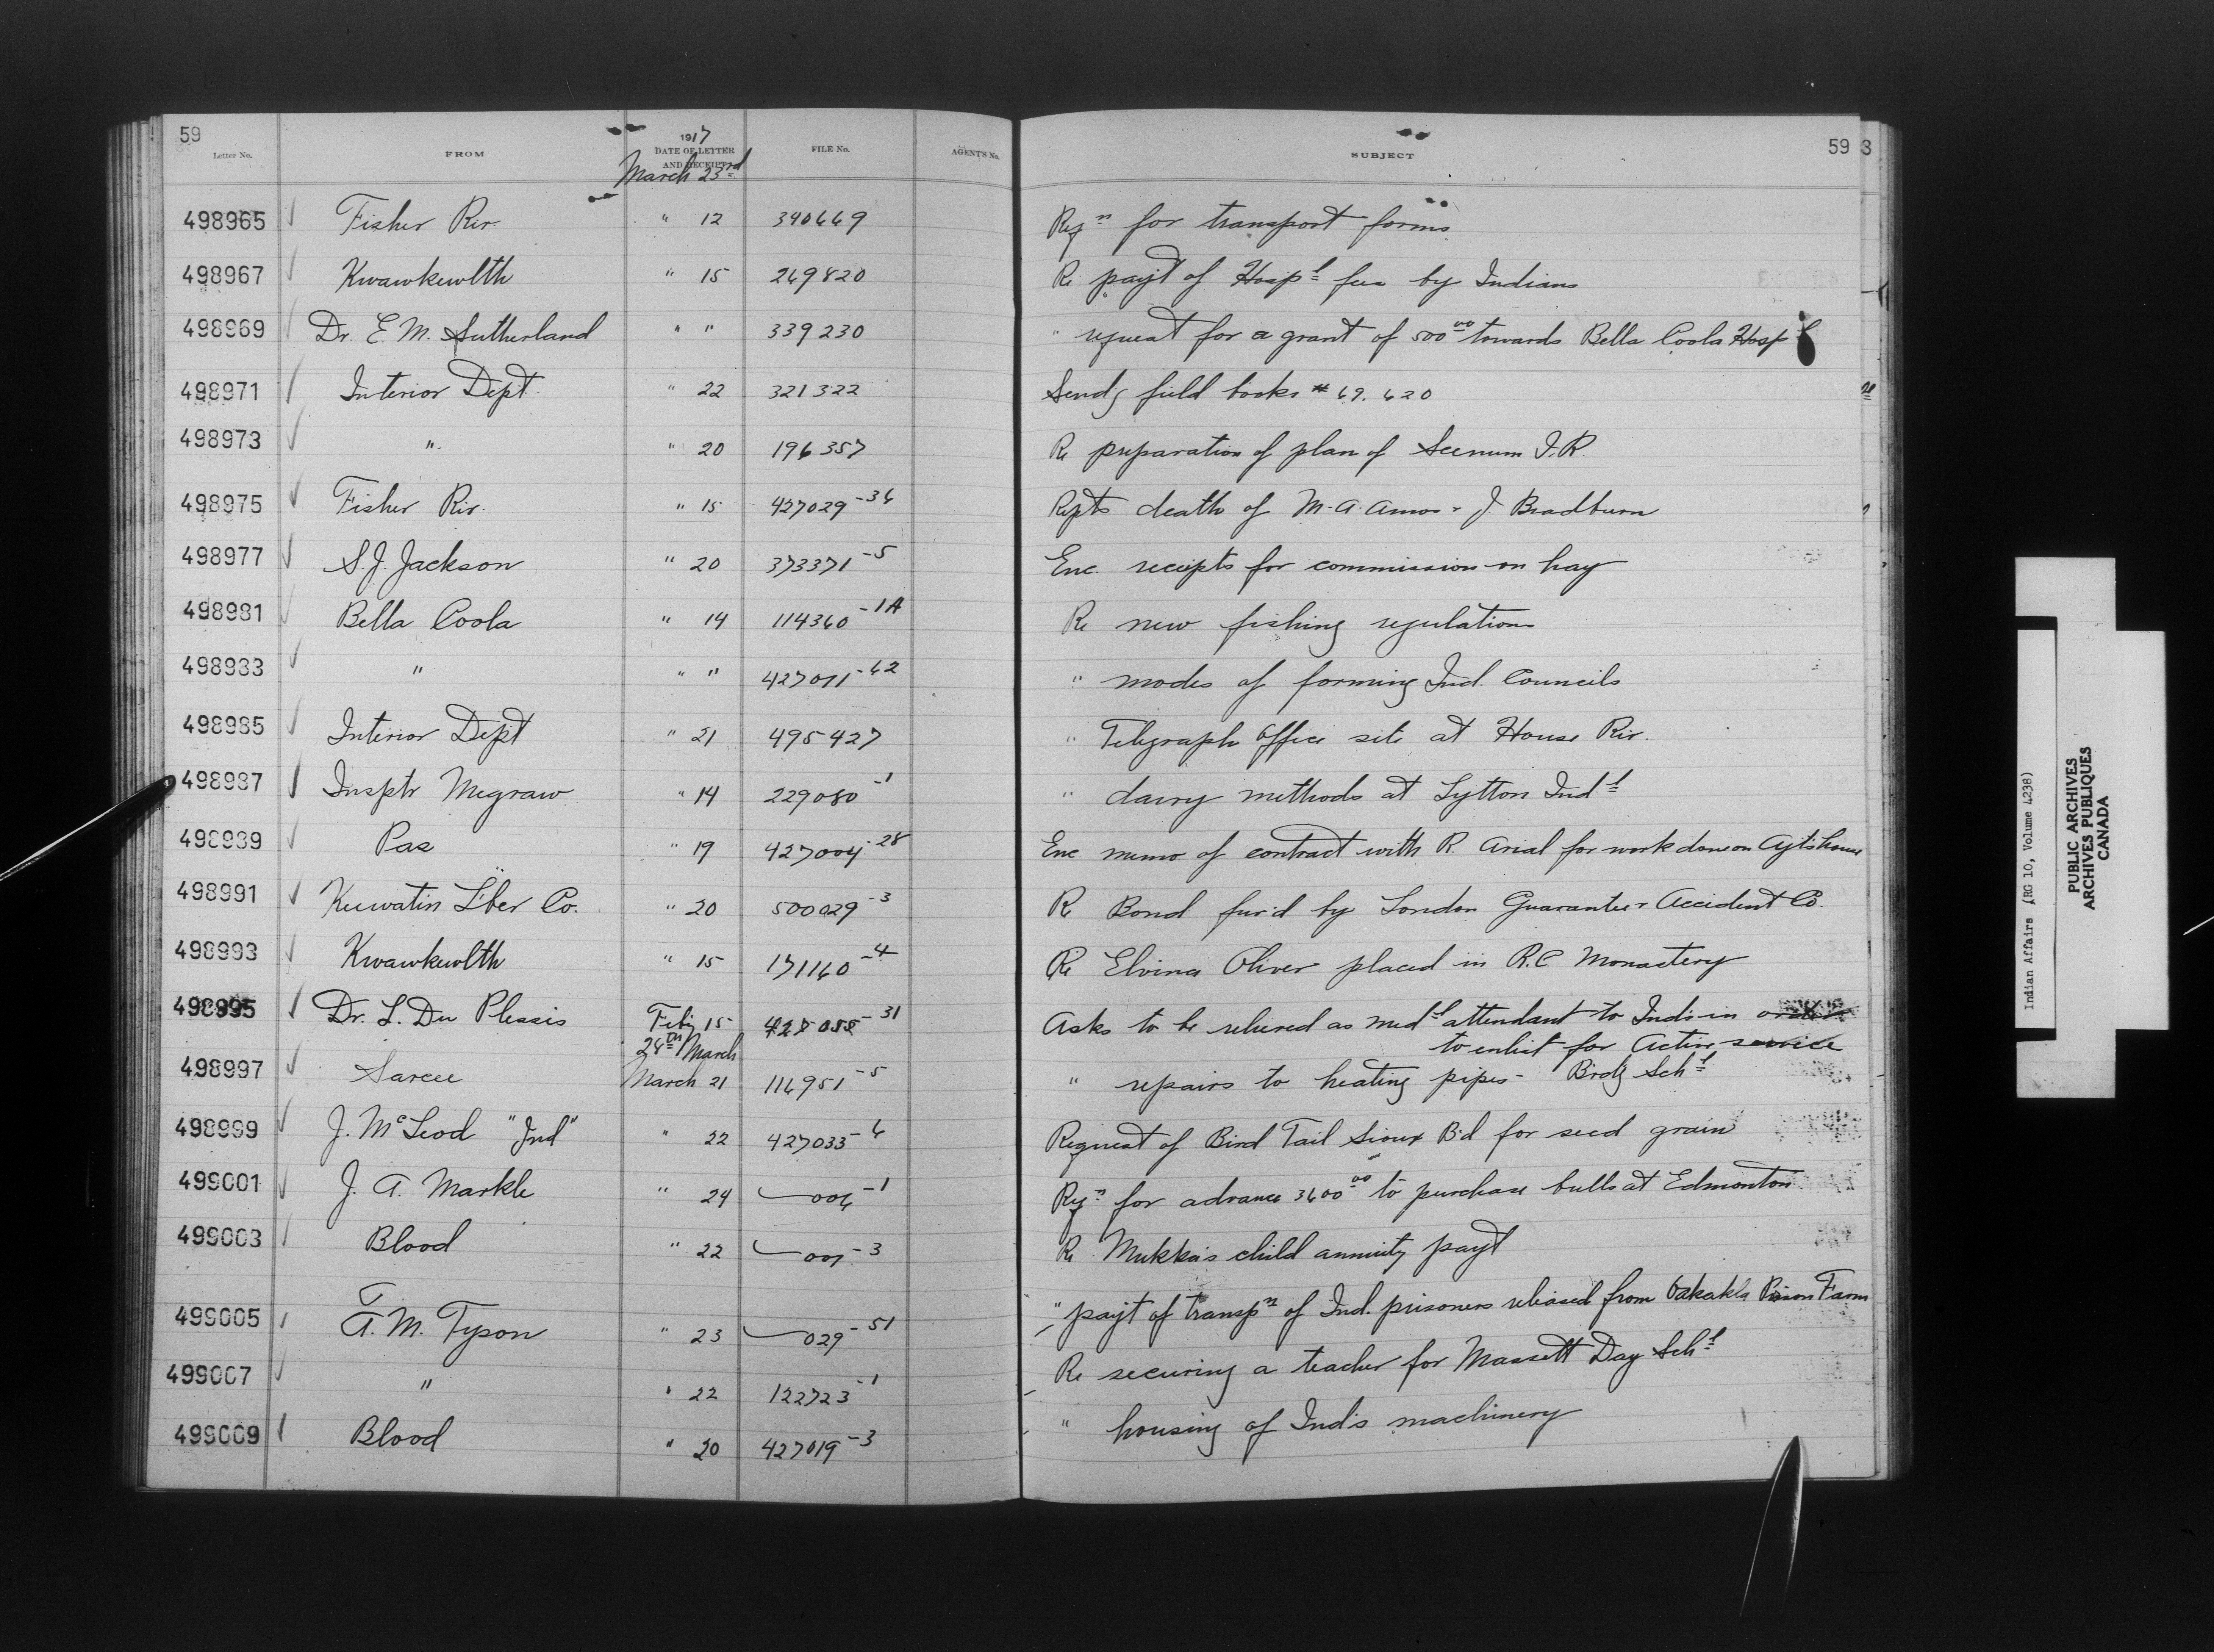 59
Letter No. FROM 1917 DATE OF LETTER AND RECEIPT FILE No. AGENT'S No. SUBJECT 59 3
March 23rd
498965 Fisher Riv. " 12 340669 Reqn for transport forms
498967 Kwawkewlth " 15 269820 Re payt of Hospl fees by Indians
498969 Dr. E. M. Sutherland " " 339230 " request for a grant of 500 00 towards Bella Coola Hospl
498971 Interior Dept. " 22 321322 Sendg field books # 69. 620
498973 " " 20 196357 Re preparation of plan of Seenum I.R.
498975 Fisher Riv. " 15 427029-36 Repts death of M. A. Amos & J. Bradburn
498977 S. J. Jackson " 20 373371-5 Enc. receipts for commission on hay
498981 Bella Coola " 14 114360-1A Re new fishing regulations
498983 " " " 427011-62 " modes of forming Ind. Councils
498985 Interior Dept " 21 495427 " Telegraph Office site at House Riv.
498987 Insptr Megraw " 14 229080-1 " dairy methods at Lytton Indl
498989 Pas " 19 427004-28 Enc memo of contract with R. Arial for work done on Agt's house
498991 Keewatin L'ber Co. " 20 500029-3 Re Bond fur'd by London Guarantee & Accident Co.
498993 Kwawkewlth " 15 171160-4 Re Elvina Oliver placed in R.C. Monastery
498995 Dr. L. Du Plessis Feby 15 -31 Asks to be relieved as medl attendant to Inds in order
28th March to enlist for Active service
498997 Sarcee March 21 116951-5 " repairs to heating pipes - Brdg Schl
498999 J. McLeod "Ind" " 22 427033-6 Request of Bird Tail Sioux B'd for seed grain
499001 J. A. Markle " 24 006-1 Reqn for advance 3600 00 to purchase bulls at Edmonton
499003 Blood " 22 001-3 Re Mukka's child annuity payt
499005 A. M. Tyson " 23 029-51 " payt of transpn of Ind. prisoners released from Oakalla Prison Farm
499007 " " 22 122723-1 Re securing a teacher for Massett Day Schl
499009 Blood " 20 427019-3 " housing of Ind's machinery
Indian Affairs (RG 10, Volume 4238)
PUBLIC ARCHIVES
ARCHIVES PUBLIQUES
CANADA